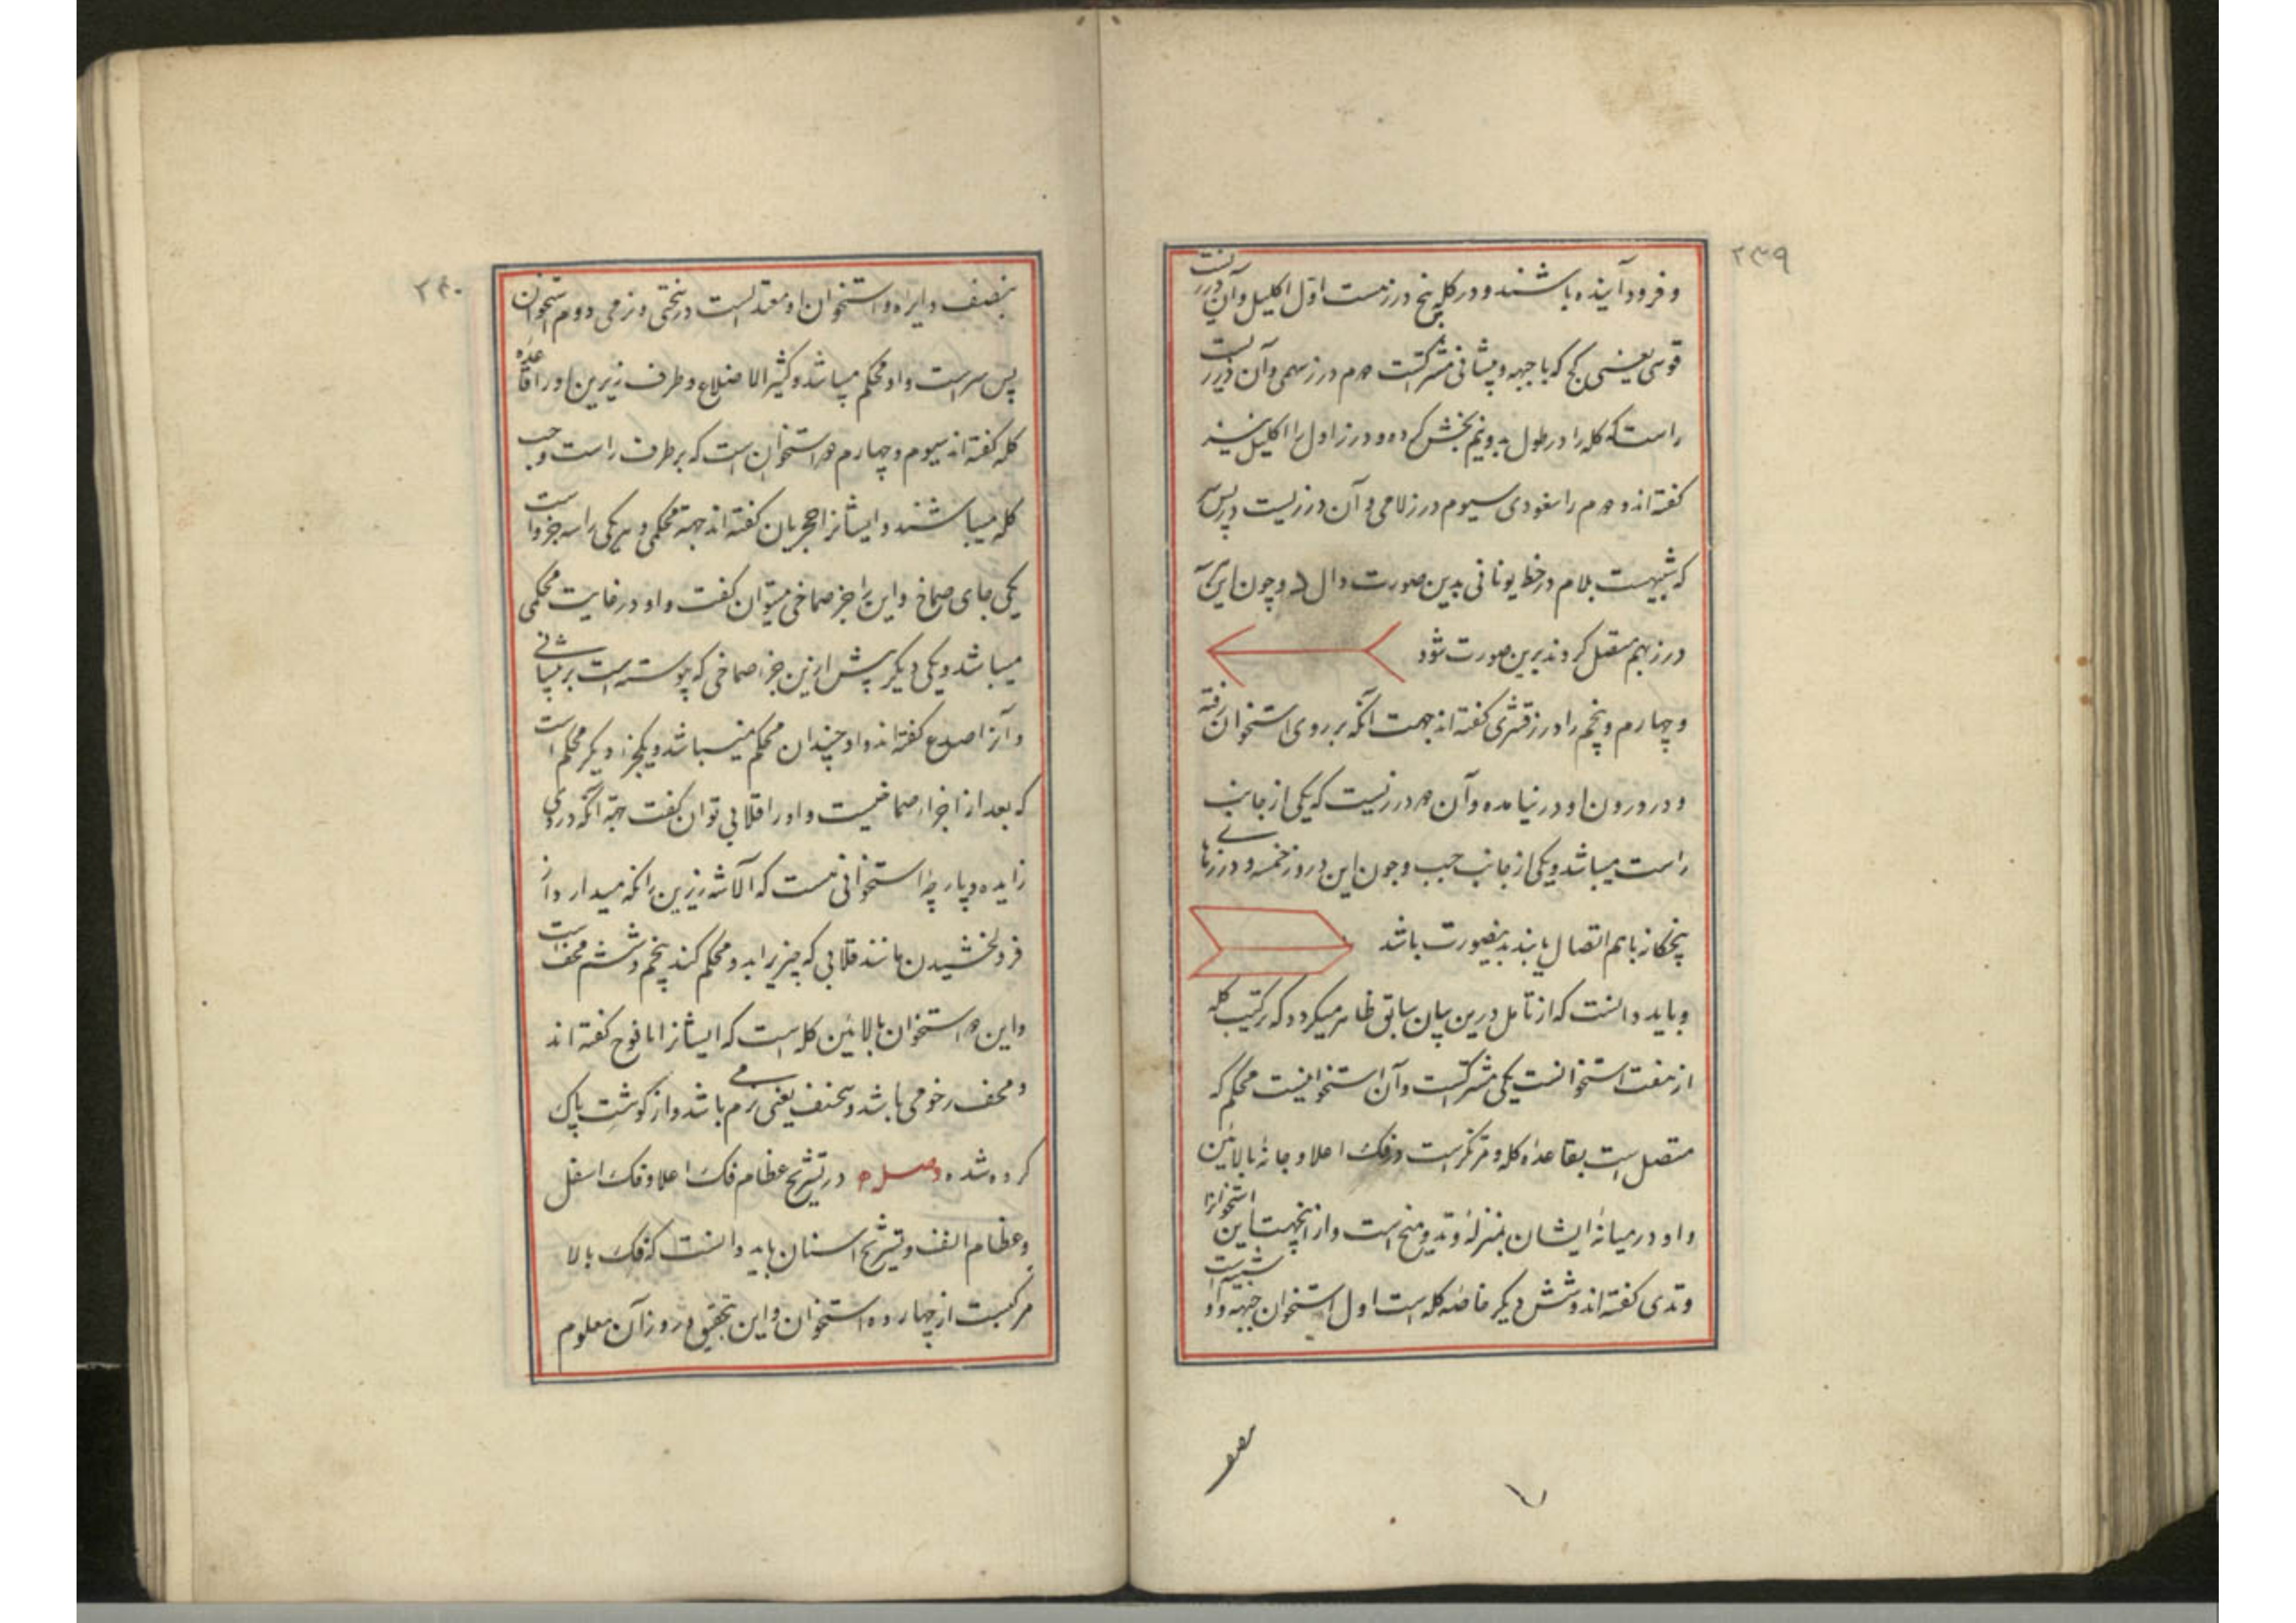 ۲۳۹
و فرود آینده باشند و در کله پنج درزست اول اکلیل و آن درزیست
قوسی یعنی کج که با جبهه و پیشانی مشترکست دوم درز سهمی و آن درزیست
راست که کله را در طول بدو نیم بخش کرده و درز اول را اکلیل نیز
گفته اند و دوم را سفودی سیوم درز لامی و آن درزیست در پس سر
که شبیهست بلام در خط یونانی بدین صورت دال د و چون این سه
درز بهم متصل کردند برین صورت شود
و چهارم و پنجم را درز قشری گفته اند جهت آنکه بر روی استخوان رفته
و در درون او در نیامده و آن دو درزیست که یکی از جانب
راست میباشد و یکی از جانب چپ و چون این دروز خمسه و درزهای
پنجکانه باهم اتصال یابند بدینصورت باشد
و باید دانست که از تامل درین بیان سابق ظاهر میکردد که ترکیب کله
از هفت استخوانست یکی مشترکست و آن استخوانیست محکم که
متصل است بقاعده کله و مرتکز است در فک اعلا و چانه بالائین
و او در میانه ایشان بمنزله وتد و میخ است و از اینجهت این استخوانرا
وتدی گفته اند و شش دیکر خاصه کله است اول استخوان جبهه و او شبیه است
۲۴۰
بنصف دایره و استخوان او معتدلست در سختی و نرمی دوم استخوان
پس سر است و او محکم میباشد و کثیر الاضلاع و طرف زیرین او را قاعده
کله گفته اند سیوم و چهارم دو استخوان است که بر طرف راست و چپ
کله میباشند و ایشانرا حجریان گفته اند جهة محکمی و هر یکی را سه جزو است
یکی جای صماخ و این را جز صماخی میتوان گفت و او در غایت محکمی
میباشد و یکی دیکر پیش ازین جز صماخی که پیوسته است بر پیشانی
و آنرا صدغ گفته اند و او چندان محکم نمیباشد و یکجز دیکر محکم است
که بعد از اجزاء صماخیست و او را قلابی توان گفت جهة آنکه درو
زایده و پارچه استخوانی هست که آلاشه زیرین را نکه میدارد از
فرو لخشیدن مانند قلابی که چیز برابد و محکم کند پنجم و ششم محف است
و این دو استخوان بالائین کله است که ایشانرا یافوخ گفته اند
و محف رخو می باشد و سخیف یعنی نرم می باشد و از کوشت پاک
کرده شده وصل در تشریح عظام فک اعلا و فک اسفل
و عظام انف و تشریح اسنان باید دانست که فک بالا
مرکبست از چهارده استخوان و این بتحقیق دروز آن معلوم